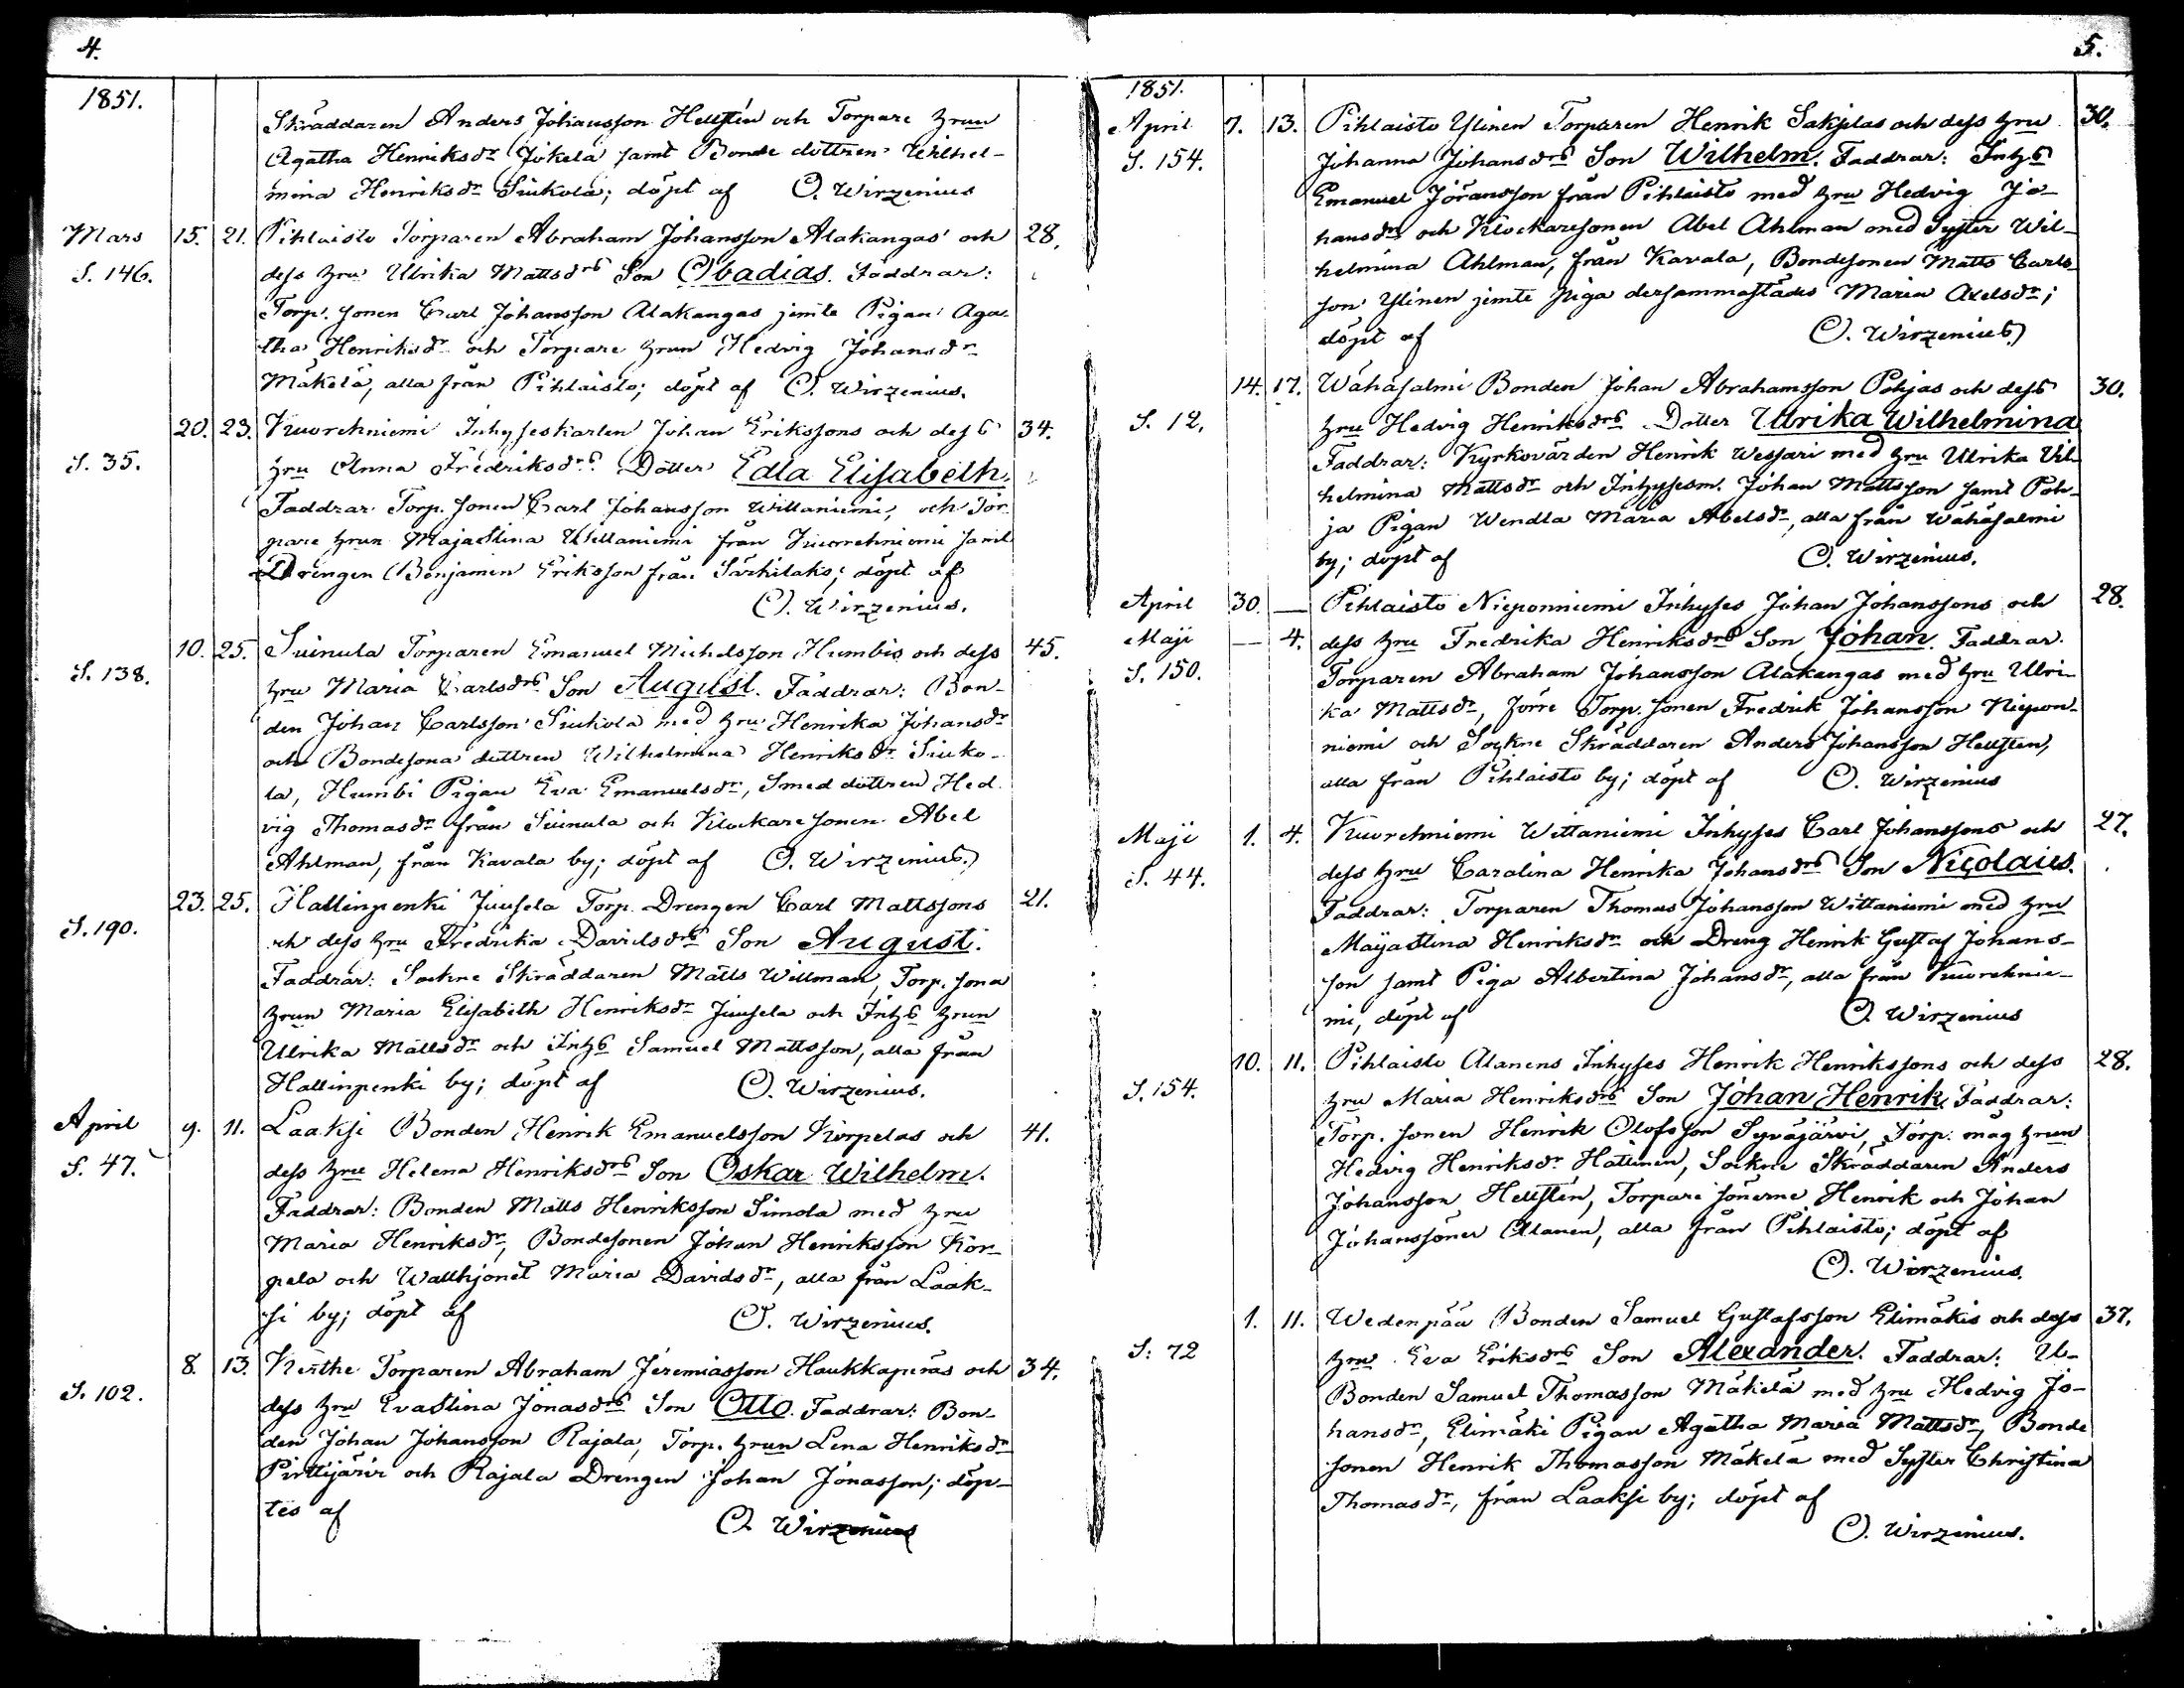 4.
1851.
Skräddaren Anders Johansson Hellstén och Torpare hrun
Agatha Henriksdr Jokela samt Bonde dottren Wilhel-
mina Henriksdr Siukola; döpt af O. Wirzenius
Mars 15. 21. Pihlaisto Torparen Abraham Johansson Alakangas och 28.
S. 146. dess hru Ulrika Mattsdrs Son Obadias. Faddrar:
Torp. sonen Carl Johansson Alakangas jemte Pigan Aga-
tha Henriksdr och Torpare hrun Hedvig Johansdr
Mäkelä, alla från Pihlaisto; döpt af O. Wirzenius.
20. 23. Kuorehniemi Inhyseskarlen Johan Erikssons och dess 34.
S. 35. hru Anna Fredriksdrs Dotter Edla Elisabeth.
Faddrar Torp. sonen Carl Johansson Wittaniemi, och Tor-
pare hrun Majastina Wittaniemi från Kuorehniemi samt
Drengen Benjamin Eriksson från Särkilaks; döpt af
O. Wirzenius.
10. 25. Suinula Torparen Emanuel Michelsson Humbis och dess 45.
S. 138. hru Maria Carlsdrs Son August. Faddrar: Bon-
den Johan Carlsson Siukola med hru Henrika Johansdr
och Bondesona dottren Wilhelmina Henriksdr Siuko-
la, Humbi Pigan Eva Emanuelsdr, Smed dottren Hed-
vig Thomasdr från Suinula och Klockaresonen Abel
Ahlman, från Kavala by; döpt af O. Wirzenius.
23. 25. Hallinpenki Juusela Torp. Drengen Carl Mattssons 21.
S. 190. och dess hru Fredrika Davidsdrs Son August.
Faddrar: Sockne Skräddaren Matts Willman, Torp. sona
hrun Maria Elisabeth Henriksdr Juusela och Inhs hrun
Ulrika Mattsdr och Inhs Samuel Mattsson, alla från
Hallinpenki by; döpt af O. Wirzenius.
April 9. 11. Laaksi Bonden Henrik Emanuelsson Korpelas och 41.
S. 47. dess hru Helena Henriksdrs Son Oskar Wilhelm.
Faddrar: Bonden Matts Henriksson Simola med hru
Maria Henriksdr, Bondesonen Johan Henriksson Kor-
pela och Wallhjonet Maria Davidsdr, alla från Laak-
si by; döpt af O. Wirzenius.
8. 13. Torparen Abraham Jeremiasson Haukkaperäs och 34.
S. 102. dess hru Evastina Jonasdrs Son Otto. Faddrar: Bon-
den Johan Johansson Rajala, Torp. hrun Lena Henriksdr
Pirttijärvi och Rajala Drengen Johan Jonasson; döp-
tes af O. Wirzenius
5.
1851.
April 7. 13. Pihlaisto Ylinen Torparen Henrik Sakjelas och dess hru 30.
S. 154. Johanna Johansdrs Son Wilhelm. Faddrar: Inhs
Emanuel Jöransson från Pihlaisto med hru Hedvig Jo-
hansdr och Klockaresonen Abel Ahlman med Syster Wil-
helmina Ahlman, från Kavala, Bondesonen Matts Carls-
son Ylinen jemte piga dersammastädes Maria Axelsdr;
döpt af O. Wirzenius
14. 17. Wähäsalmi Bonden Johan Abrahamsson Pohjas och dess 30.
S. 12. hru Hedvig Henriksdrs Dotter Ulrika Wilhelmina
Faddrar: Kyrkovärden Henrik Wessari med hru Ulrika Vil-
helmina Mattsdr och Inhysesm. Johan Mattsson samt Poh-
ja Pigan Wendla Maria Abelsdr, alla från Wähäsalmi
by; döpt af O. Wirzenius.
April 30. — Pihlaisto Nieponniemi Inhyses Johan Johanssons och 28.
Maji — 4. dess hru Fredrika Henriksdrs Son Johan. Faddrar.
S. 150. Torparen Abraham Johansson Alakangas med hru Ulri-
ka Mattsdr, förre Torp. sonen Fredrik Johansson Niepon-
niemi och Sockne Skräddaren Anders Johansson Hellsten,
alla från Pihlaisto by; döpt af O. Wirzenius
Maji 1. 4. Kuorehniemi Wittaniemi Inhyses Carl Johanssons och 27.
S. 44. dess hru Carolina Henrika Johansdrs Son Nicolaus.
Faddrar: Torparen Thomas Johansson Wittaniemi med hru
Majastina Henriksdr och Dreng Henrik Gustaf Johans-
son samt Piga Albertina Johansdr, alla från Kuorehnie-
mi, döpt af O. Wirzenius
10. 11. Pihlaisto Alanens Inhyses Henrik Henrikssons och dess 28.
S. 154. hru Maria Henriksdrs Son Johan Henrik. Faddrar:
Torp. sonen Henrik Olofsson Syväjärvi, Torp. måg hrun
Hedvig Henriksdr Hatinen, Sockne Skräddaren Anders
Johansson Hellstén, Torpare sönerne Henrik och Johan
Johanssöner Alanen, alla från Pihlaisto; döpt af
O. Wirzenius.
1. 11. Wedenpää Bonden Samuel Gustafsson Elimäkis och dess 37.
S. 72 hru Eva Eriksdrs Son Alexander. Faddrar: U-
Bonden Samuel Thomasson Mäkelä med hru Hedvig Jo-
hansdr, Elimäki Pigan Agatha Maria Mattsdr, Bonde
sonen Henrik Thomasson Mäkelä med Syster Christina
Thomasdr, från Laaksi by; döpt af
O. Wirzenius.